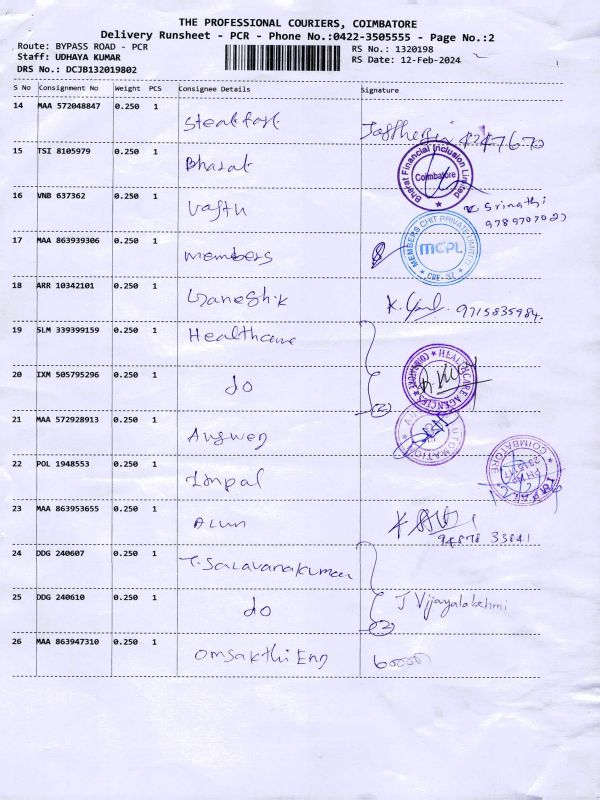 THE PROFESSIONAL COURIERS, COIMBATORE
Delivery Runsheet - PCR - Phone No.:0422-3505555 - Page No.:2
Route: BYPASS ROAD - PCR
Staff: UDHAYA KUMAR
DRS No.: DCJB132019802
RS No.: 1320198
RS Date: 12-Feb-2024
S No Consignment No Weight PCS Consignee Details Signature
14 MAA 572048847 0.250 1 Steakfast
15 TSI 8105979 0.250 1 Bharat
Bharat Financial Inclusion Limited Coimbatore
16 VNB 637362 0.250 1 Vasth Srimathi
17 MAA 863939306 0.250 1 members
MEMBERS CHIT PRIVATE LIMITED MCPL CBE-31
18 ARR 10342101 0.250 1 Ganeshik 9715835984.
19 SLM 339399159 0.250 1 Healthcare
HEALTHCARE AGENCIES COIMBATORE
20 IXM 505795296 0.250 1 do (2)
21 MAA 572928913 0.250 1
22 POL 1948553 0.250 1 Impal
COIMBATORE
23 MAA 863953655 0.250 1 Alun 94878 33841
24 DDG 240607 0.250 1 T. Saravanakumar
25 DDG 240610 0.250 1 do (2) J Vijayalakshmi
26 MAA 863947310 0.250 1 Omsakthi Eng